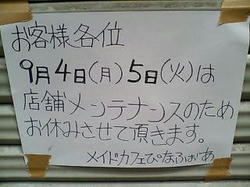 お客様各位
9月4日(月)5日(火)は
店舗メンテナンスのため
お休みさせて頂きます。
メイドカフェぴなふぉあ